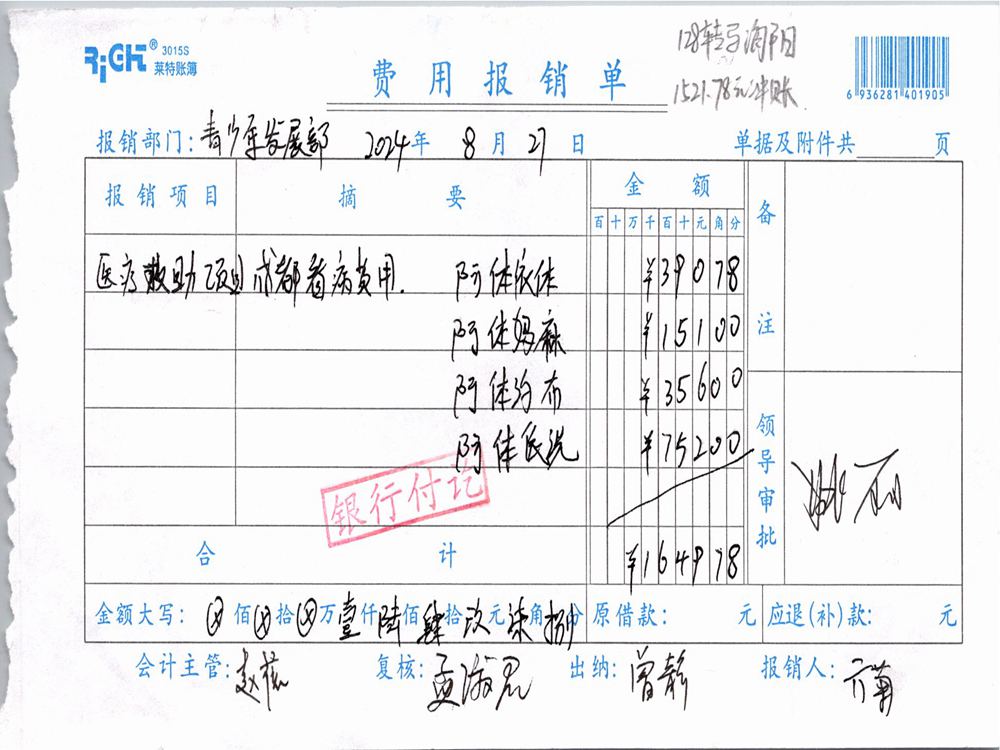 RiGHT® 3015S
莱特账簿
128转马海阳
1521.78元冲账
费用报销单
6 936281 401905
报销部门：青少年发展部 2024年 8月 27日 单据及附件共 页
报销项目 摘要 金额 备注
百十万千百十元角分
医疗救助项目成都看病费用. 阿体依体 ¥39078
阿体妈麻 ¥15100
阿体约布 ¥35600
阿体民洗 ¥75200
领导审批
银行付讫
合计 ¥164978
金额大写：⊗佰⊗拾⊗万壹仟陆佰肆拾玖元柒角捌分 原借款： 元 应退(补)款： 元
会计主管： 复核：孟淑君 出纳：曾静 报销人：